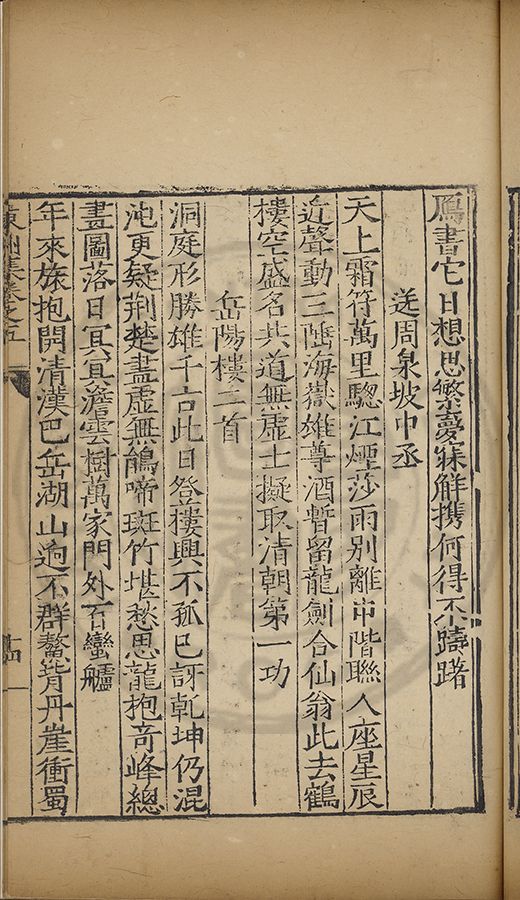 鴈書它日想思繁憂寐觧携何得不躊躇
送周泉坡中丞
天上霜符萬里驄江煙莎雨別離中階聯八座星辰
近聲動三陲海嶽雄尊酒暫留龍劍合仙翁此去鶴
樓空盛名共道無虛士擬取清朝第一功
岳陽樓二首
洞庭形勝雄千古此日登樓興不孤已訝乾坤仍混
沌更疑荆楚盡虛無鵑啼斑竹堪愁思龍抱奇峰總
畫圖落日冥冥簷雲樹萬家門外百蠻艫
年來旅抱開清漢巴岳湖山逈不群鰲背丹崖衝蜀
集卷之五
十四